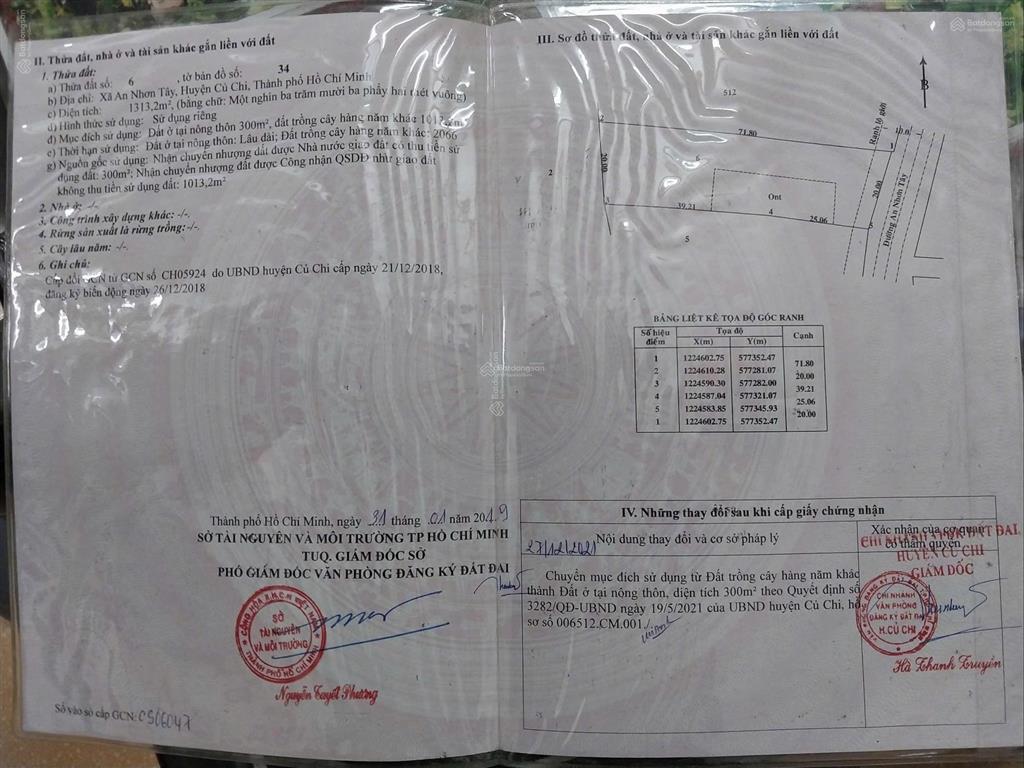 II. Thửa đất, nhà ở và tài sản khác gắn liền với đất
1. Thửa đất:
a) Thửa đất số: 6 , tờ bản đồ số: 34
b) Địa chỉ: Xã An Nhơn Tây, Huyện Củ Chi, Thành phố Hồ Chí Minh
c) Diện tích: 1313,2m², (bằng chữ: Một nghìn ba trăm mười ba phẩy hai mét vuông)
d) Hình thức sử dụng: Sử dụng riêng
đ) Mục đích sử dụng: Đất ở tại nông thôn 300m², đất trồng cây hàng năm khác 1013,2m²
e) Thời hạn sử dụng: Đất ở tại nông thôn: Lâu dài; Đất trồng cây hàng năm khác: 2066
g) Nguồn gốc sử dụng: Nhận chuyển nhượng đất được Nhà nước giao đất có thu tiền sử
dụng đất: 300m²; Nhận chuyển nhượng đất được Công nhận QSDĐ như giao đất
không thu tiền sử dụng đất: 1013,2m²
2. Nhà ở: -/-
3. Công trình xây dựng khác: -/-.
4. Rừng sản xuất là rừng trồng: -/-.
5. Cây lâu năm: -/-
6. Ghi chú:
Cấp đổi GCN từ GCN số CH05924 do UBND huyện Củ Chi cấp ngày 21/12/2018,
đăng ký biến động ngày 26/12/2018
Thành phố Hồ Chí Minh, ngày 31 tháng 01 năm 2019
SỞ TÀI NGUYÊN VÀ MÔI TRƯỜNG TP HỒ CHÍ MINH
TUQ. GIÁM ĐỐC SỞ
PHÓ GIÁM ĐỐC VĂN PHÒNG ĐĂNG KÝ ĐẤT ĐAI
CỘNG HÒA X.H.C.N VIỆT NAM
SỞ
TÀI NGUYÊN
VÀ MÔI TRƯỜNG
THÀNH PHỐ HỒ CHÍ MINH
Nguyễn Tuyết Phương
Số vào sổ cấp GCN: CS06047
III. Sơ đồ thửa đất, nhà ở và tài sản khác gắn liền với đất
B
512
2
71.80
1
Ranh lộ giới
20.00
6
2
Ont
20.00
Đường An Nhơn Tây
3
39.21
4
25.06
5
5
BẢNG LIỆT KÊ TỌA ĐỘ GÓC RANH
Số hiệu điểm Tọa độ Cạnh
X(m) Y(m)
1 1224602.75 577352.47
71.80
2 1224610.28 577281.07
20.00
3 1224590.30 577282.00
39.21
4 1224587.04 577321.07
25.06
5 1224583.85 577345.93
20.00
1 1224602.75 577352.47
IV. Những thay đổi sau khi cấp giấy chứng nhận
Nội dung thay đổi và cơ sở pháp lý
Xác nhận của cơ quan
có thẩm quyền
27/12/2021
Chuyển mục đích sử dụng từ Đất trồng cây hàng năm khác
thành Đất ở tại nông thôn, diện tích 300m² theo Quyết định số
3282/QĐ-UBND ngày 19/5/2021 của UBND huyện Củ Chi, hồ
sơ số 006512.CM.001.
HUYỆN CỦ CHI
GIÁM ĐỐC
CHI NHÁNH
VĂN PHÒNG
ĐĂNG KÝ ĐẤT ĐAI
H.CỦ CHI
Hà Thanh Truyền
Batdongsan
Batdongsan
Batdongsan